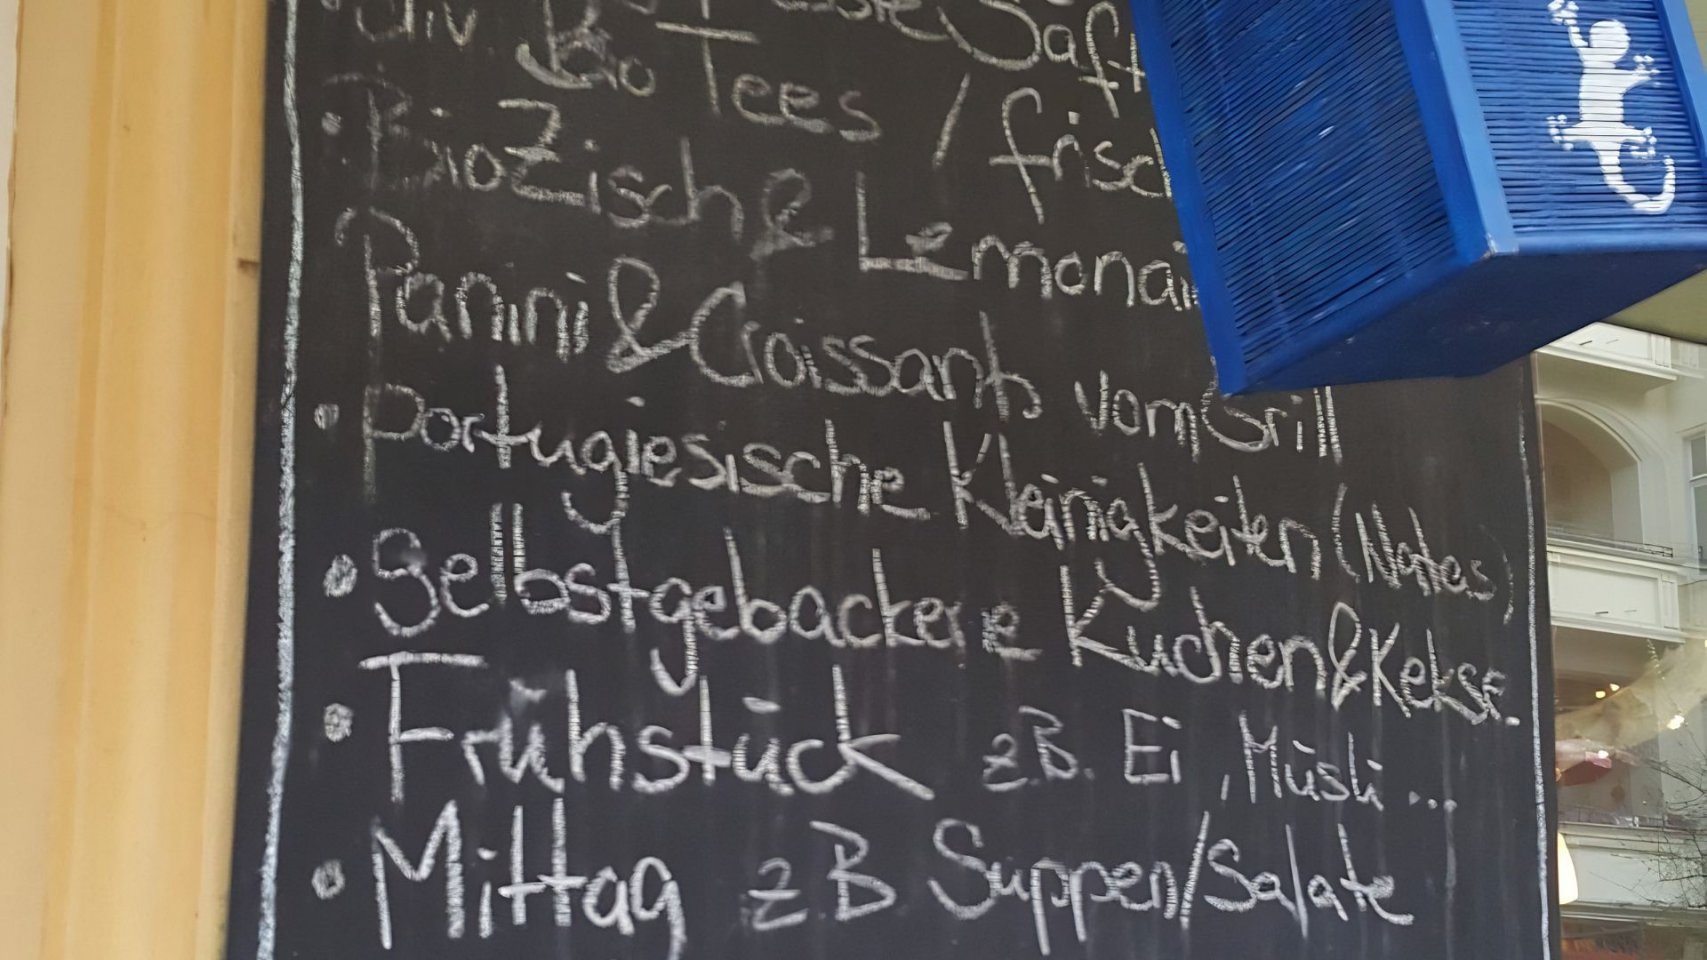 Säft
· div Bio Tees / frisch
· BioZisch & Lemonai
Panini & Croissants vom Grill
· Portugiesische Kleinigkeiten (Nates)
· Selbstgebackene Kuchen & Kekse.
· Frühstück z.B. Ei, Müsli ...
· Mittag z.B Suppen/Salate